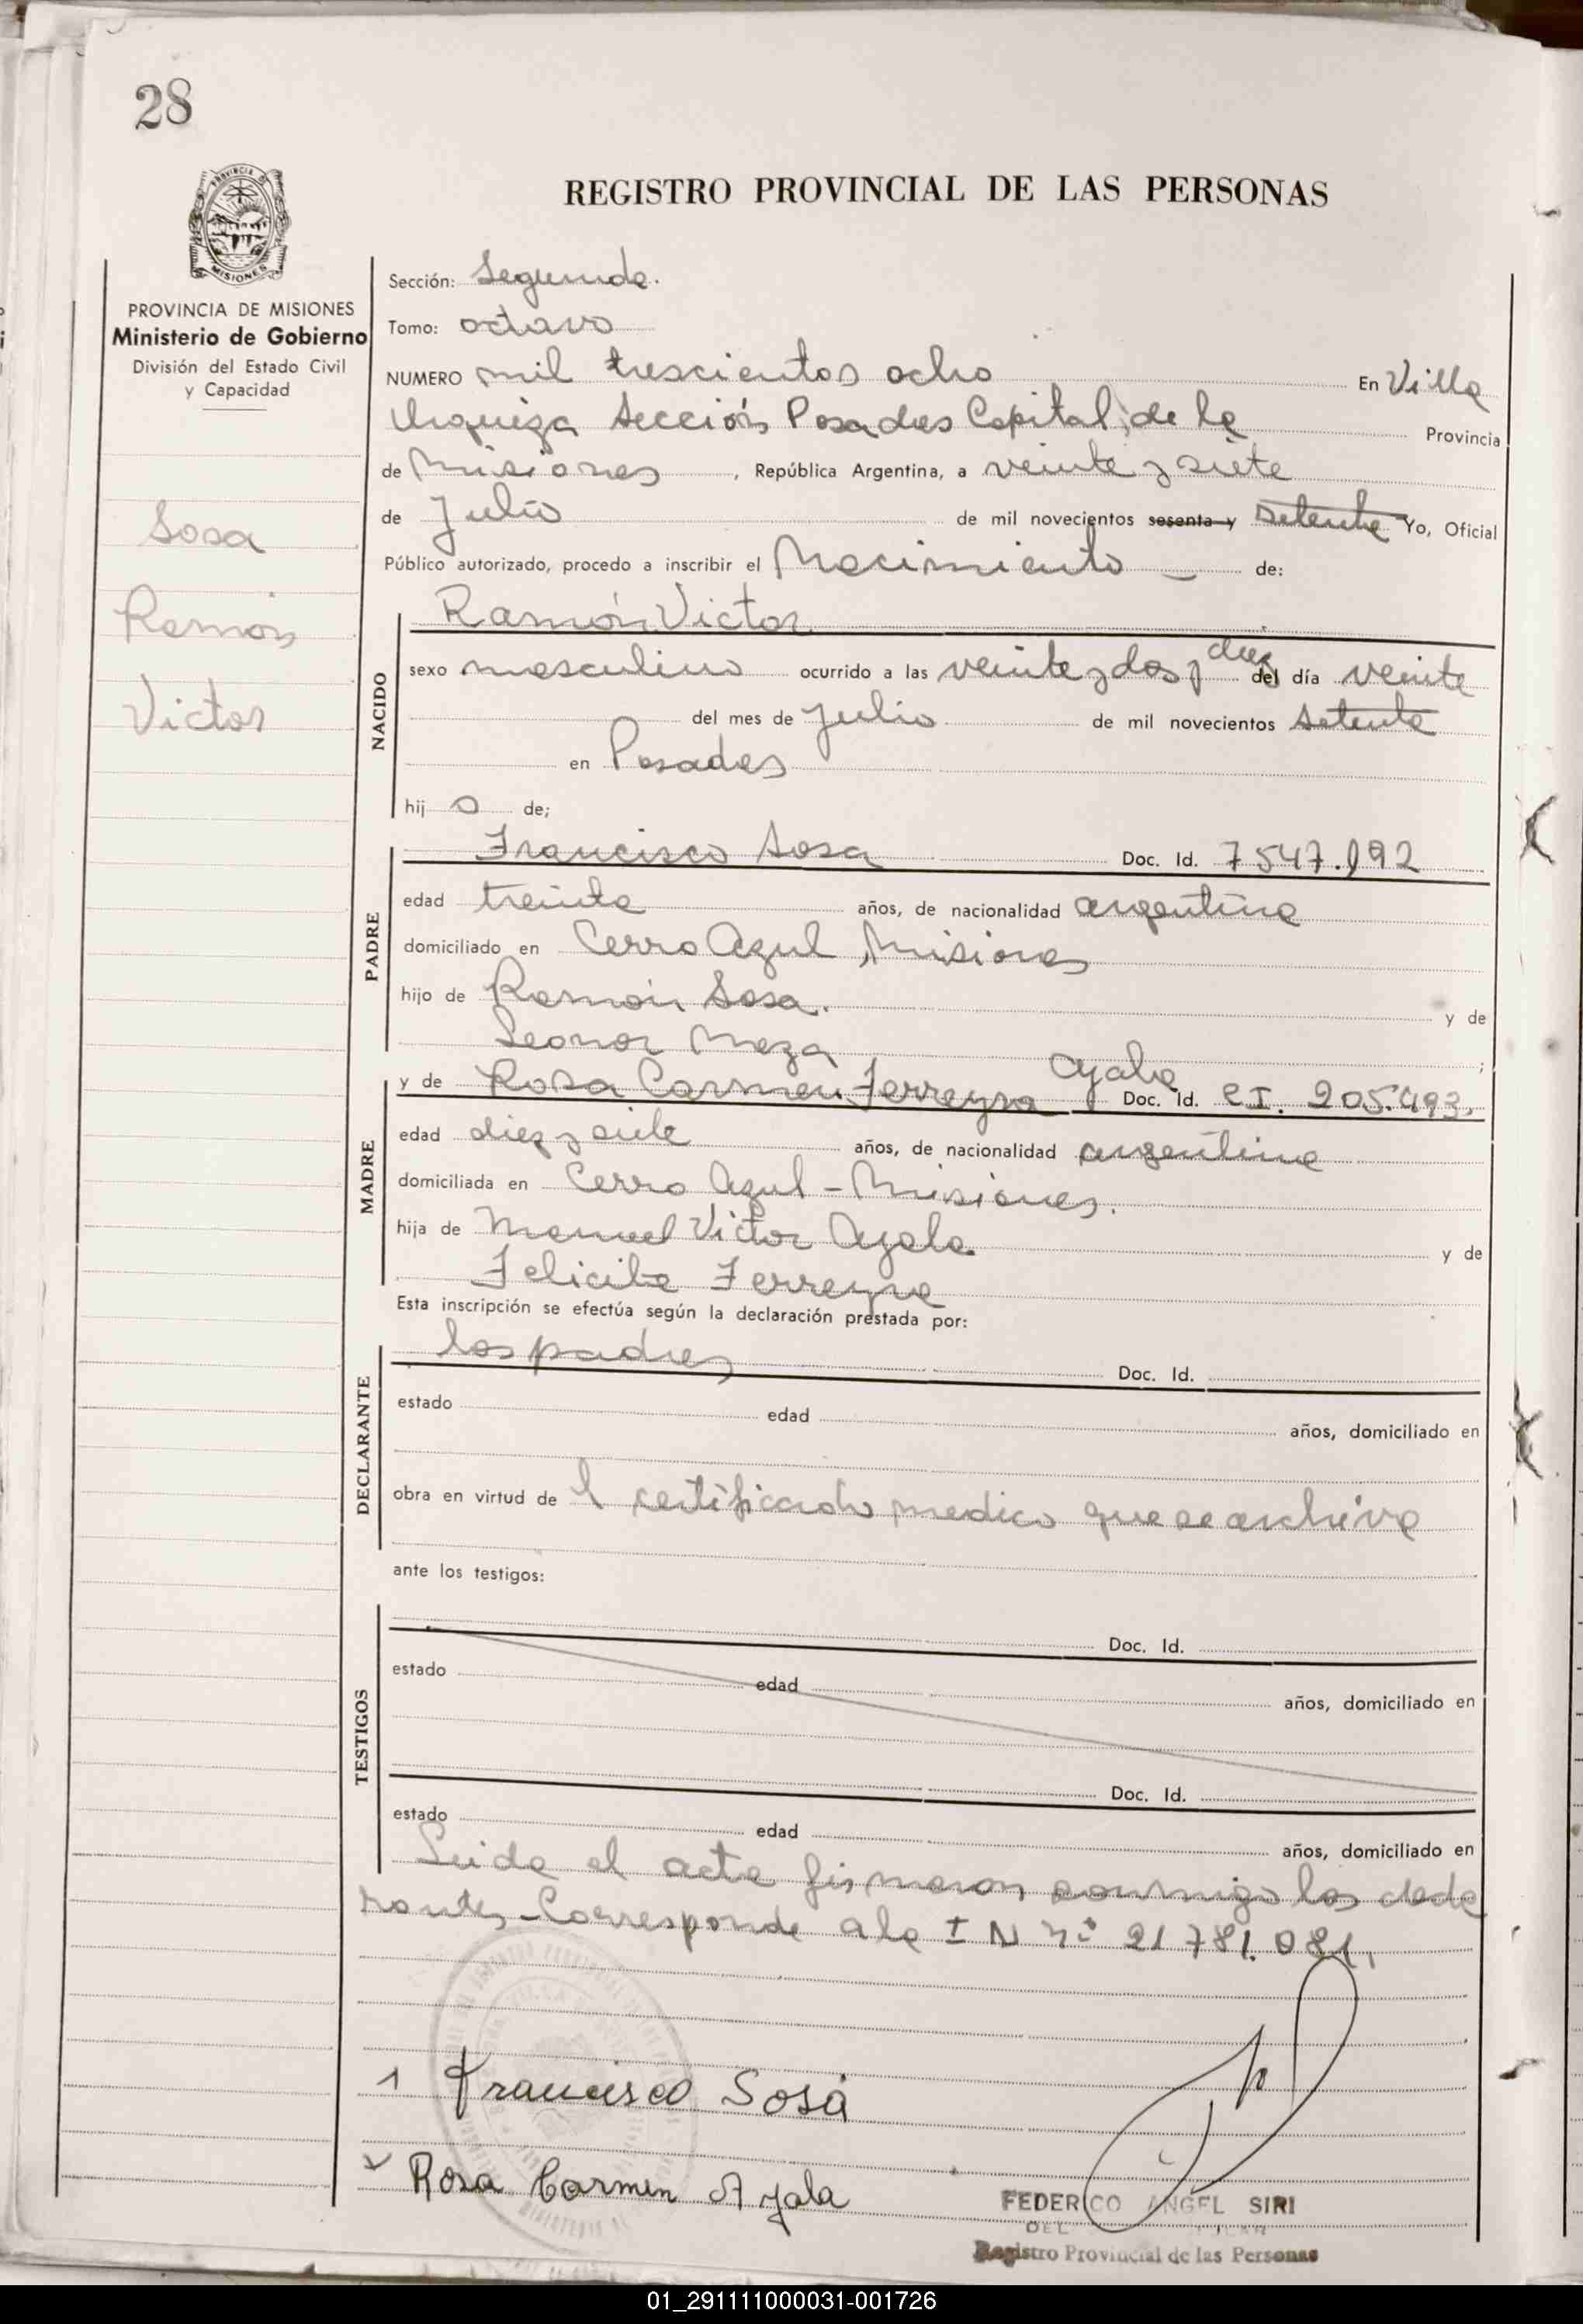 28
PROVINCIA
MISIONES
PROVINCIA DE MISIONES
Ministerio de Gobierno
División del Estado Civil
y Capacidad
Sosa
Ramón
Victor
REGISTRO PROVINCIAL DE LAS PERSONAS
Sección: Segunda.
Tomo: octavo
NUMERO mil trescientos ocho En Villa
Urquiza Sección Posadas Capital, de la Provincia
de Misiones, República Argentina, a veinte y siete
de Julio de mil novecientos sesenta y setenta Yo, Oficial
Público autorizado, procedo a inscribir el Nacimiento de:
NACIDO
Ramón Victor
sexo masculino ocurrido a las veinte y dos y diez del día veinte
del mes de Julio de mil novecientos setenta
en Posadas
hij o de;
PADRE
Francisco Sosa Doc. Id. 7547.192
edad treinta años, de nacionalidad argentina
domiciliado en Cerro Azul, Misiones
hijo de Ramón Sosa. y de
Leonor Meza ;
MADRE
y de Rosa Carmen Ferreyra Ayala Doc. Id. CI. 205.493.
edad diez y siete años, de nacionalidad argentina
domiciliada en Cerro Azul - Misiones.
hija de Manuel Victor Ayala y de
Felicita Ferreyra
Esta inscripción se efectúa según la declaración prestada por:
DECLARANTE
los padres Doc. Id.
estado edad años, domiciliado en
obra en virtud de l certificado medico que se archiva
ante los testigos:
TESTIGOS
Doc. Id.
estado edad años, domiciliado en
Doc. Id.
estado edad años, domiciliado en
Leida el acta firmaron conmigo los decla
rantes - Corresponde a la I N Nº 21.781.081.
1 Francisco Sosa
Rosa Carmen Ayala
FEDERICO ANGEL SIRI
DEL
Registro Provincial de las Personas
01_291111000031-001726